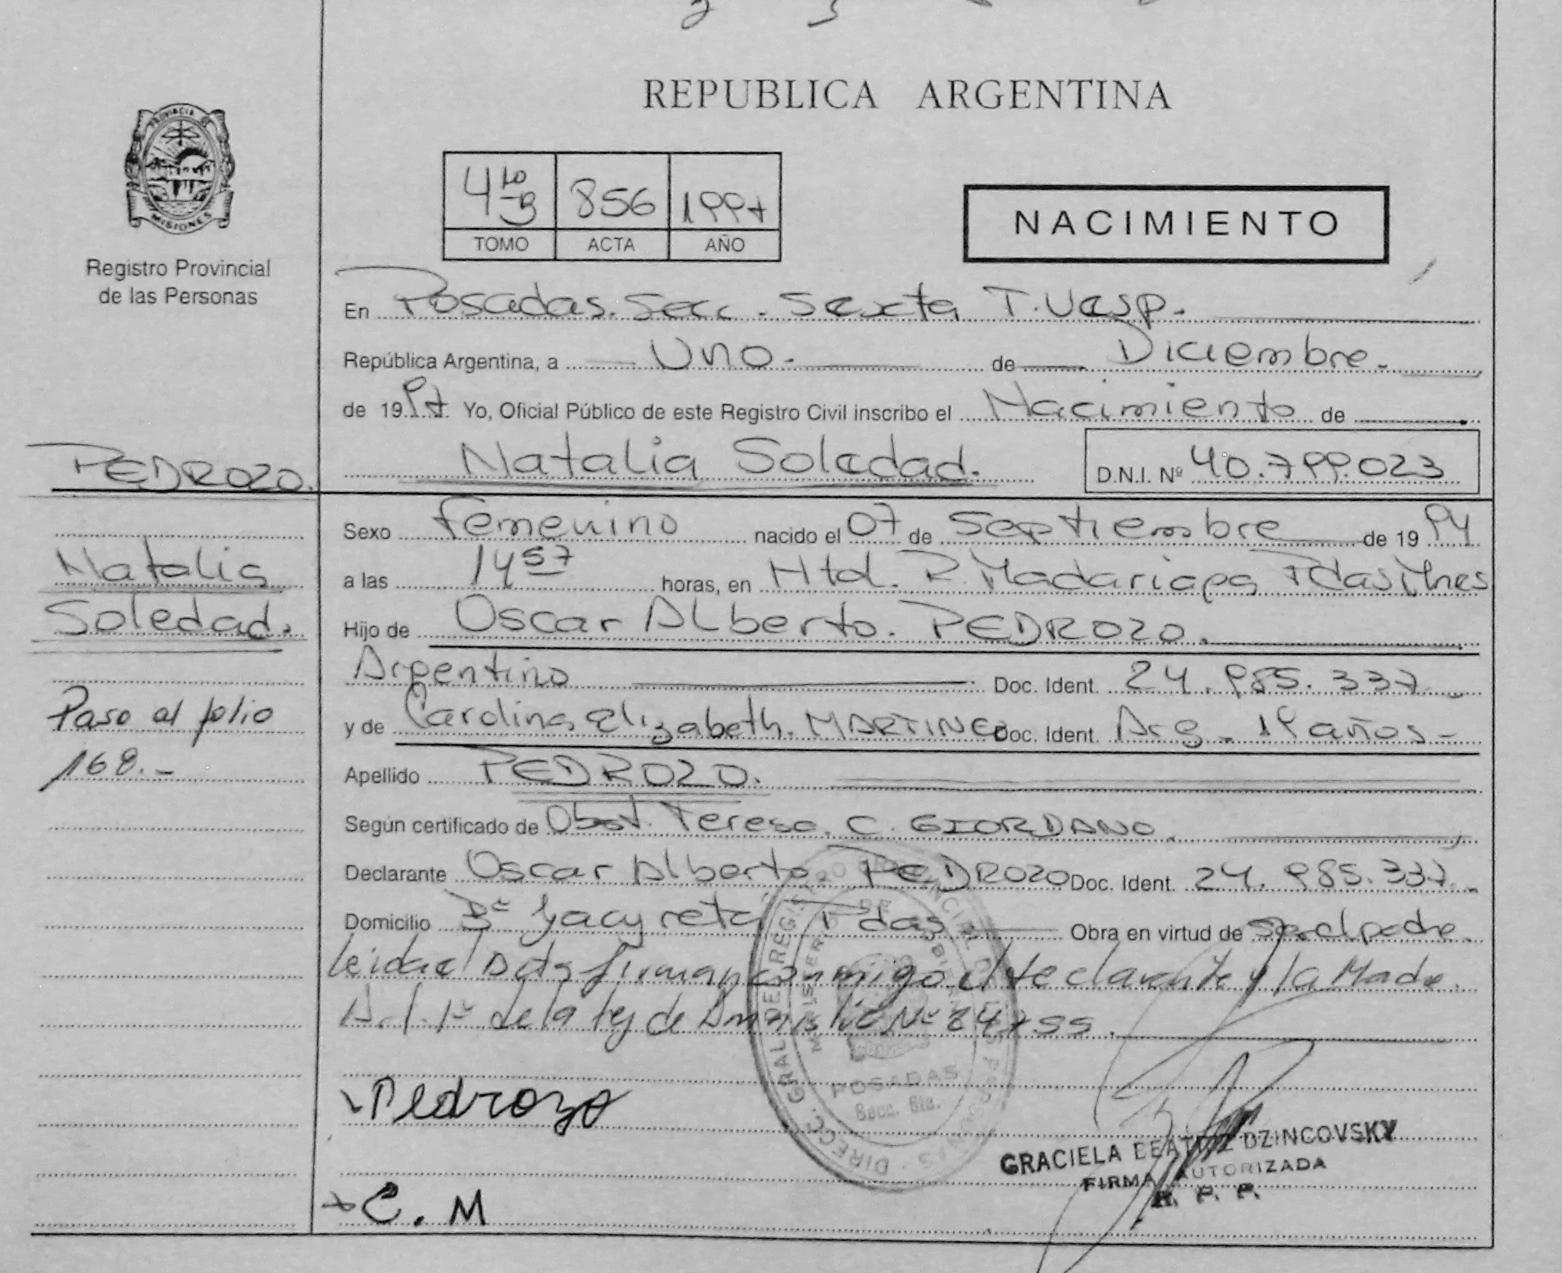 REPUBLICA ARGENTINA
PROVINCIA DE MISIONES
Registro Provincial
de las Personas
4to B 856 1997
TOMO ACTA AÑO
NACIMIENTO
En Posadas. Secc. Sexta T. Vesp.
República Argentina, a Uno. de Diciembre.
de 1997 Yo, Oficial Público de este Registro Civil inscribo el Nacimiento de
Natalia Soledad. D.N.I. Nº 40.799.023
PEDROZO.
Natalia
Soledad.
Paso al folio
168.-
Sexo Femenino nacido el 07 de Septiembre de 1994
a las 14 57 horas, en Htal. R. Madariaga Pdas Mnes
Hijo de Oscar Alberto. PEDROZO.
Argentino Doc. Ident. 24.985.337.
y de Carolina Elizabeth. MARTINEZ Doc. Ident. Arg. 19 años-
Apellido PEDROZO.
Según certificado de Obst. Teresa. C. GIORDANO.
Declarante Oscar Alberto PEDROZO Doc. Ident. 24.985.337.
Domicilio Bº Yacyreta Pdas Obra en virtud de ser el padre.
Leida el Acta firman conmigo el declarante y la Madre.
Art. 1º de la ley de Amnistia Nº 24755.
Pedrozo
C. M
DIRECC. GRAL. DEL REGISTRO PROVINCIAL DE LAS PERSONAS
MINISTERIO DE GOBIERNO
POSADAS
Secc. 6ta.
GRACIELA BEATRIZ DZINCOVSKY
FIRMA AUTORIZADA
R. P. P.